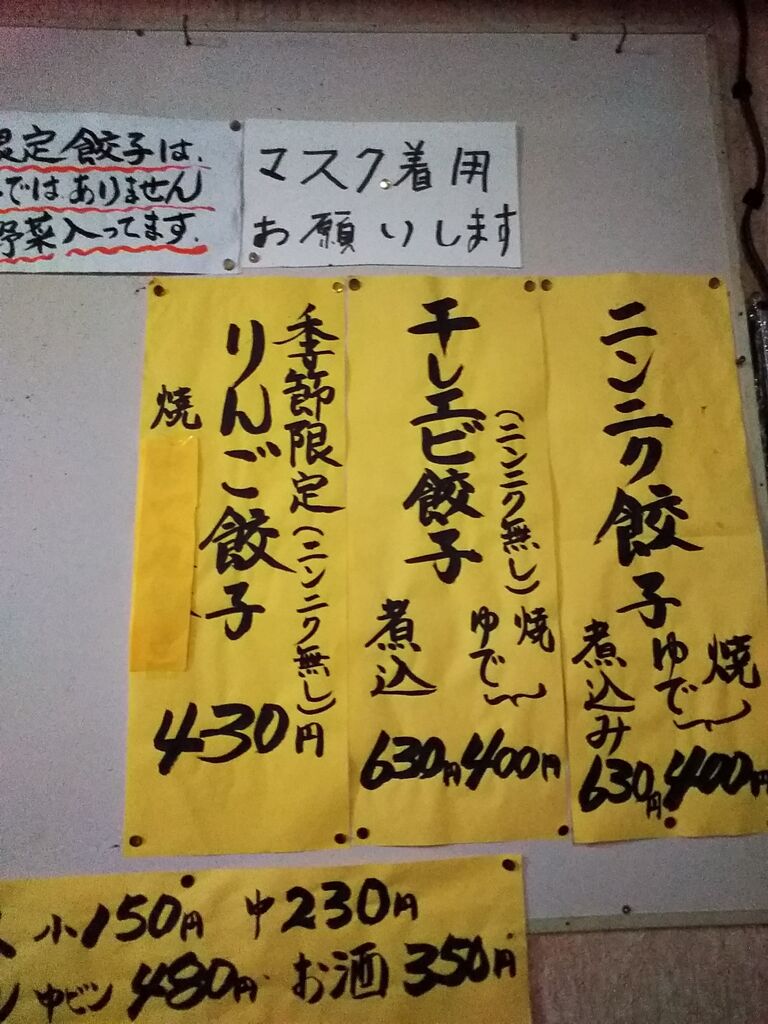 定餃子は、
ではありません
野菜入ってます。
マスク着用
お願いします
ニンニク餃子
焼
ゆで
400円
煮込み
630円
干しエビ餃子
(ニンニク無し)
焼
ゆで
400円
煮込
630円
季節限定(ニンニク無し)
りんご餃子
焼
430円
小150円 中230円
中ビン480円 お酒350円